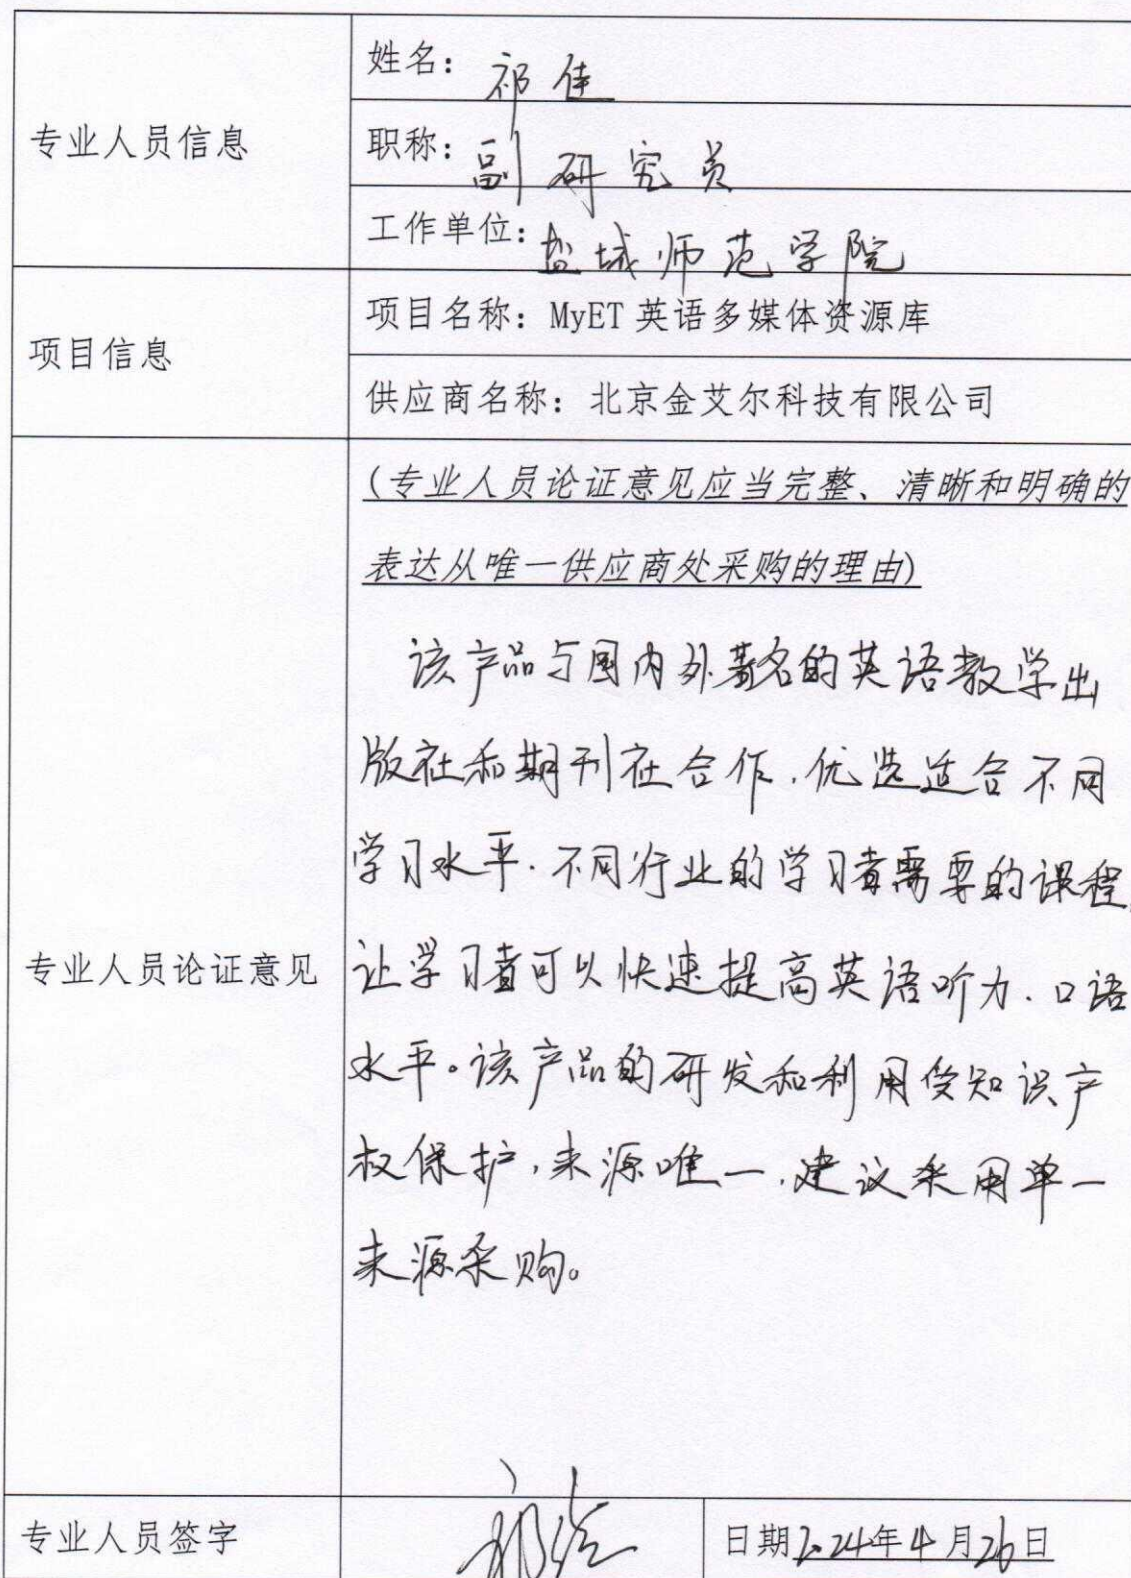 专业人员信息
姓名：祁佳
职称：副研究员
工作单位：盐城师范学院
项目信息
项目名称：MyET 英语多媒体资源库
供应商名称：北京金艾尔科技有限公司
专业人员论证意见
(专业人员论证意见应当完整、清晰和明确的
表达从唯一供应商处采购的理由)
该产品与国内外著名的英语教学出
版社和期刊社合作，优选适合不同
学习水平、不同行业的学习者需要的课程，
让学习者可以快速提高英语听力、口语
水平。该产品的研发和利用受知识产
权保护，来源唯一，建议采用单一
来源采购。
专业人员签字
祁佳
日期2024年4月26日